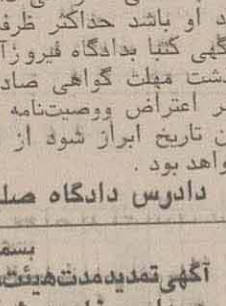 د او باشد حداکثر ظرف
گهی کتبا بدادگاه فیروزآ
شت مهلت گواهی صاد
ر اعتراض ووصیتنامه
ن تاریخ ابراز شود از
واهد بود .
دادرس دادگاه صل
بسم
آگهی تمدیدمدت هیئت